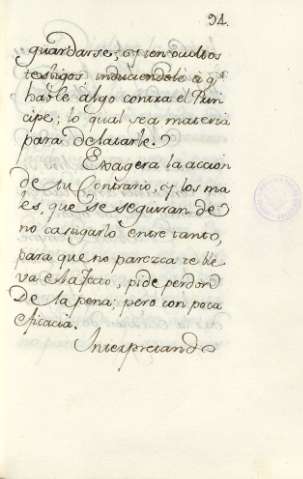 94.
guardarse, y en ocultos
testigos induciendole a q.e
hable algo contra el Prin-
cipe; lo qual sea materia
para delatarle.
Exagera la accion
de tu Contrario, y los ma
es, que se seguiran de
no castigarlo entre tanto,
para que no parezca te lle
va el afecto, pide perdon
de la pena; pero con poca
eficacia.
Interpretando